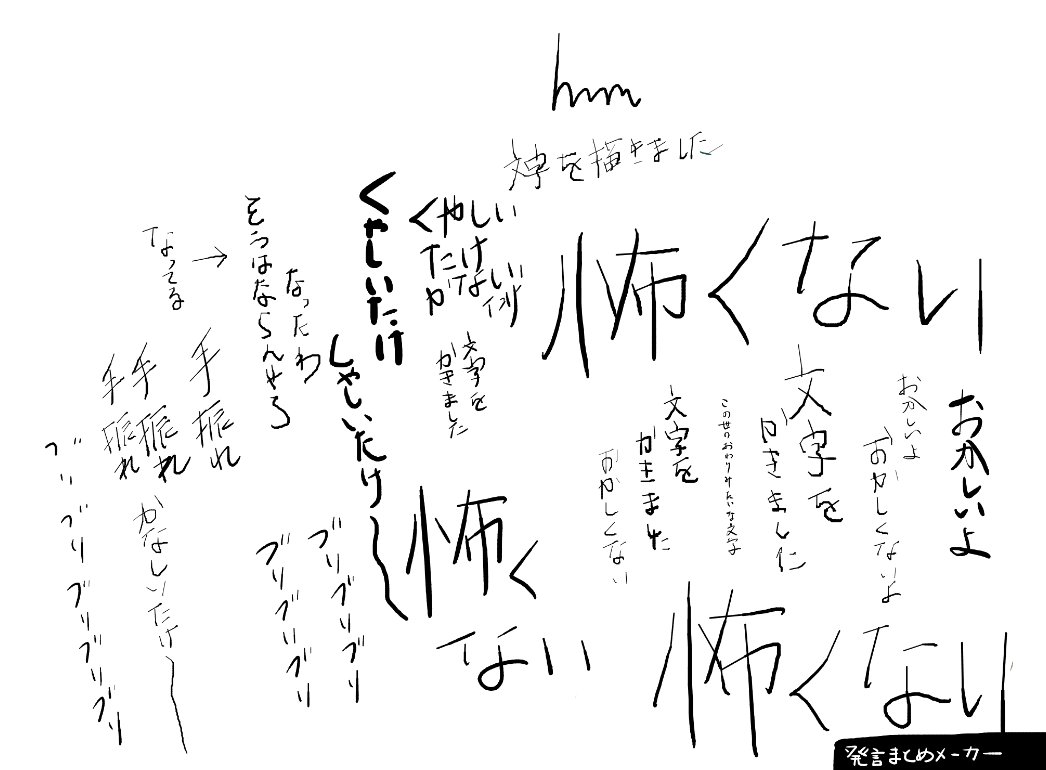 hmm
文字を描きました
怖くない
おかしいよ
おかしいよ
おかしくないよ
文字を
かきました
この世のおわりみたいな文字
文字を
かきました
おかしくない
怖くない
くやしい
だけ
文字を
かきました
くやしいたけ
しゃしいたけ〜
怖く
ない
なったわ
そうはならんやろ
→
なってる
手振れ
手振れ
手振れ
かなしいたけ〜
ブリブリブリブリ
ブリブリブリブリ
ブリブリブリブリブリ
発言まとめメーカー